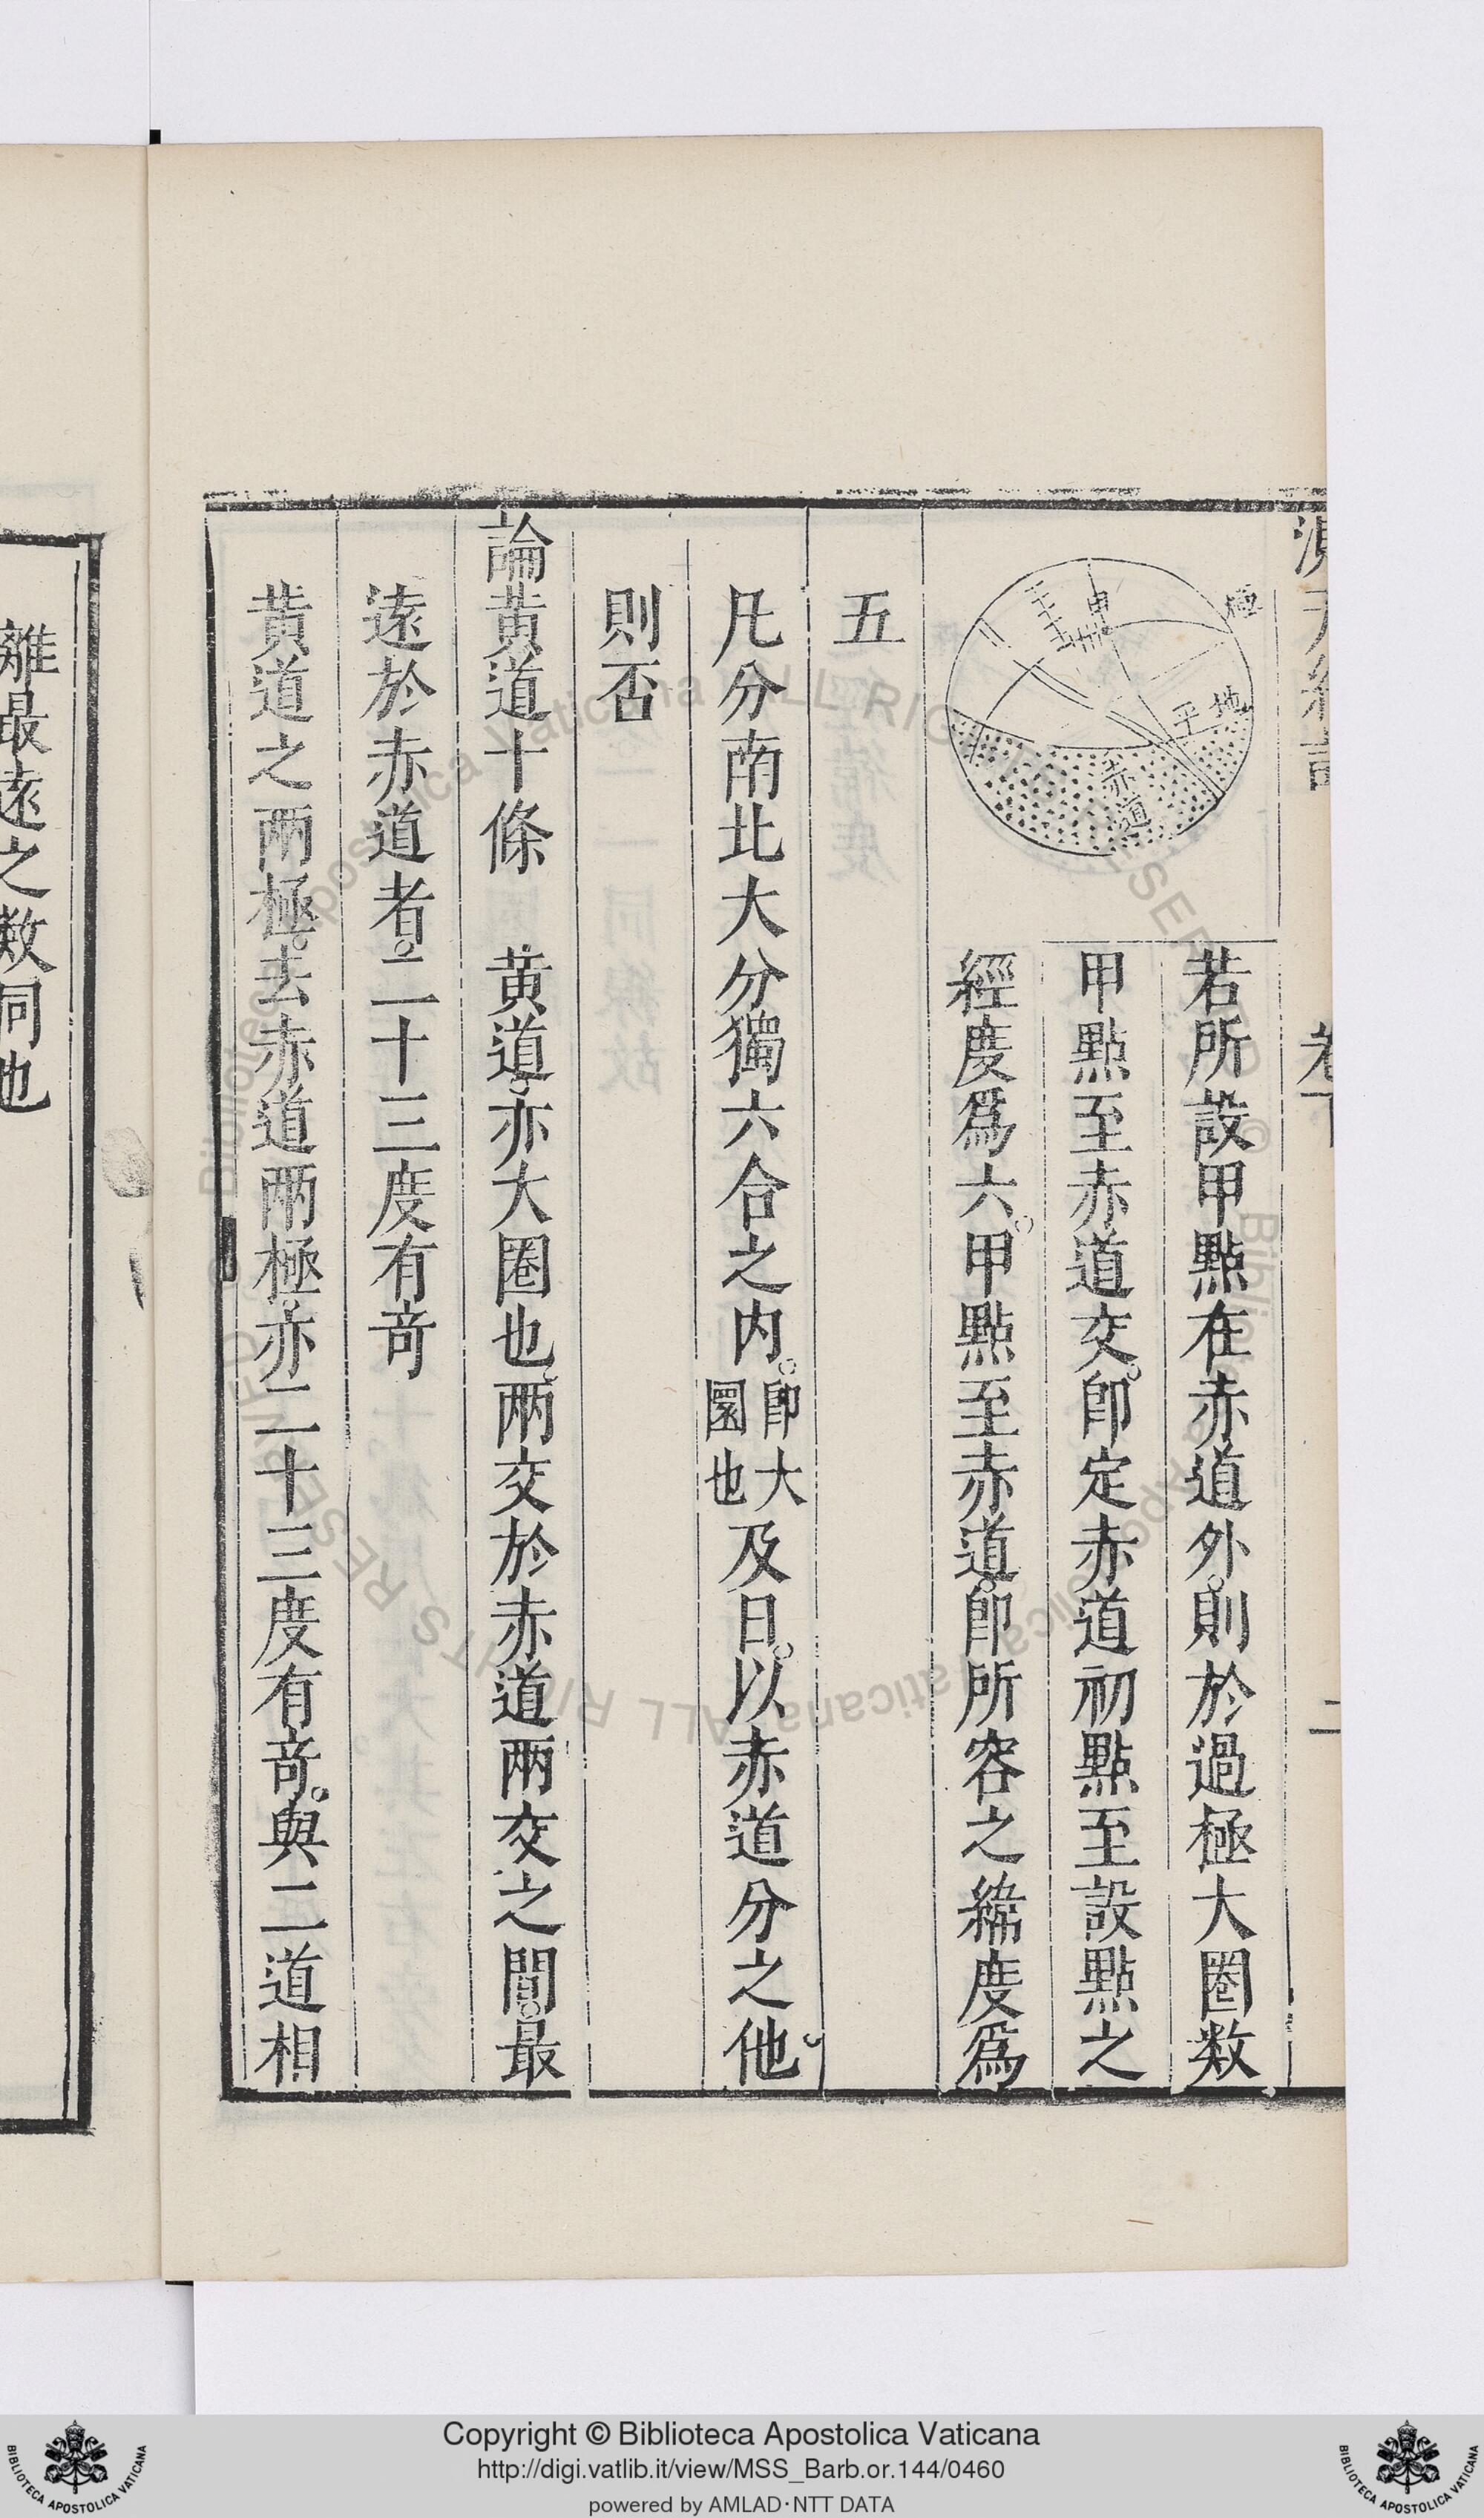 極
地平
赤道
甲
若所設甲點在赤道外。則於過極大圈数
甲點至赤道交。即定赤道初點至設點之
經度爲六。甲點至赤道。即所容之緯度爲
五
凡分南北大分獨六合之内。即大圜也及日。以赤道分之他
則否
論黄道十條　黄道、亦大圈也、兩交於赤道兩交之間。最
遠於赤道者。二十三度有奇
黄道之兩極。去赤道兩極、亦二十三度有奇。與二道相
離最遠之数同也
卷下
二
Copyright © Biblioteca Apostolica Vaticana
http://digi.vatlib.it/view/MSS_Barb.or.144/0460
powered by AMLAD·NTT DATA
BIBLIOTECA APOSTOLICA VATICANA
BIBLIOTECA APOSTOLICA VATICANA